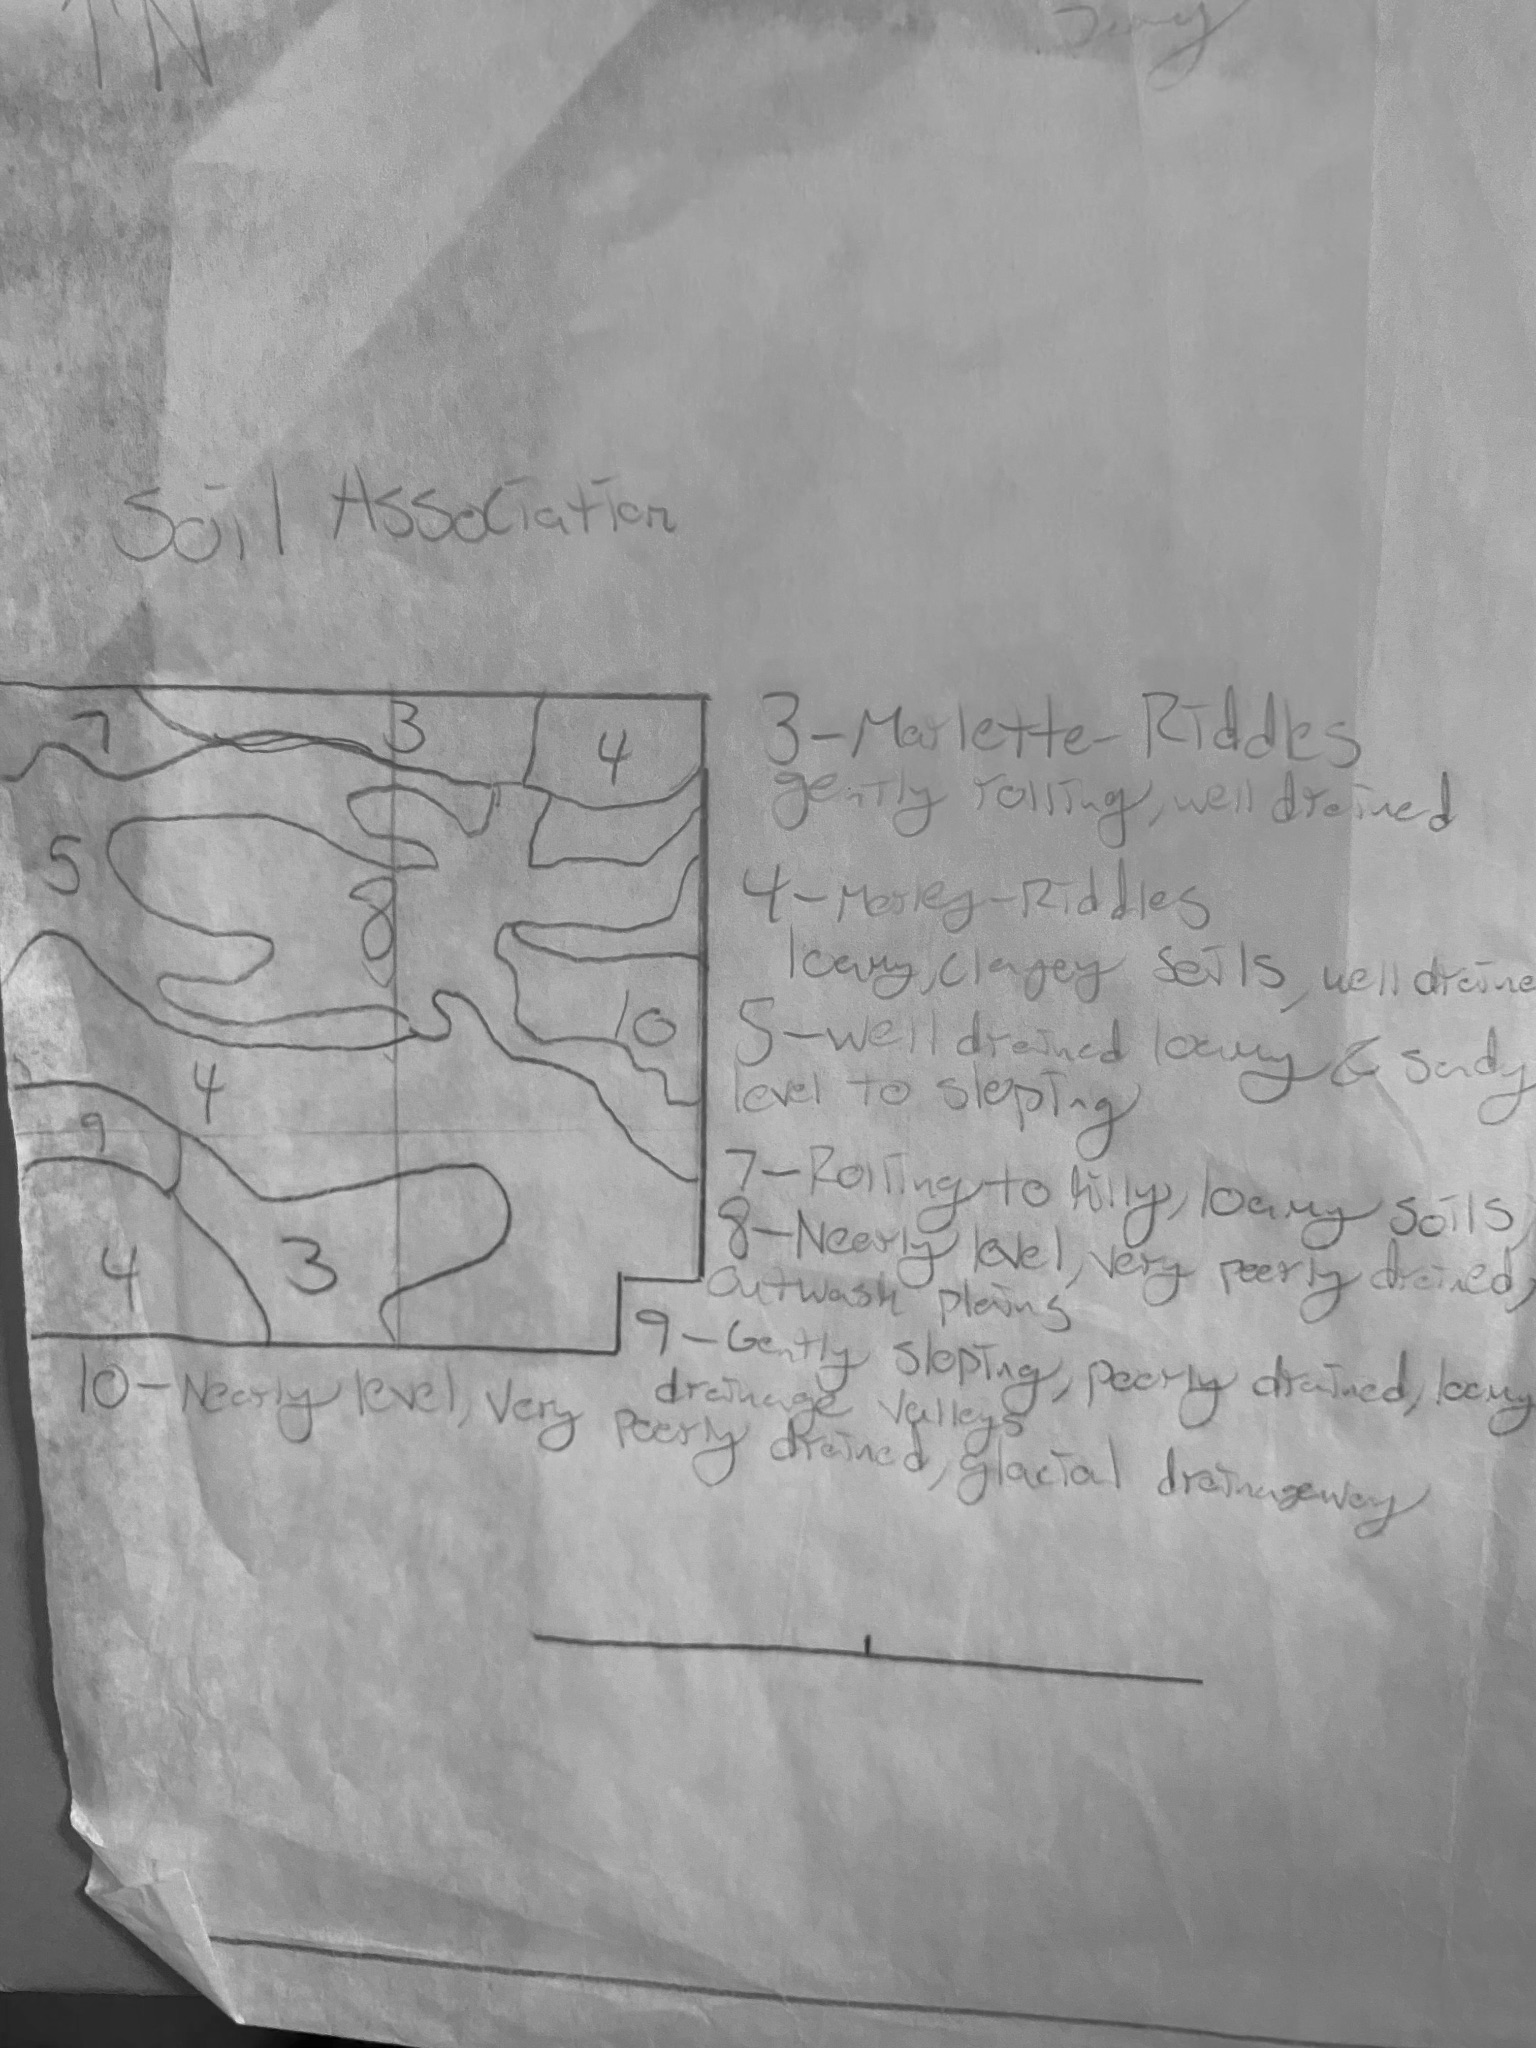 IN
Soil Association
7
3
4
5
8
10
4
9
4
3
3-Marlette-Riddles
gently rolling, well drained
4-Morley-Riddles
loamy, clayey soils, well draine
5-well drained loamy & sandy
level to sloping
7-Rolling to hilly, loamy soils,
8-Nearly level, very poorly drained,
outwash plains
9-Gently sloping, poorly drained, loamy
drainage valleys
10-Nearly level, very poorly drained, glacial drainageway